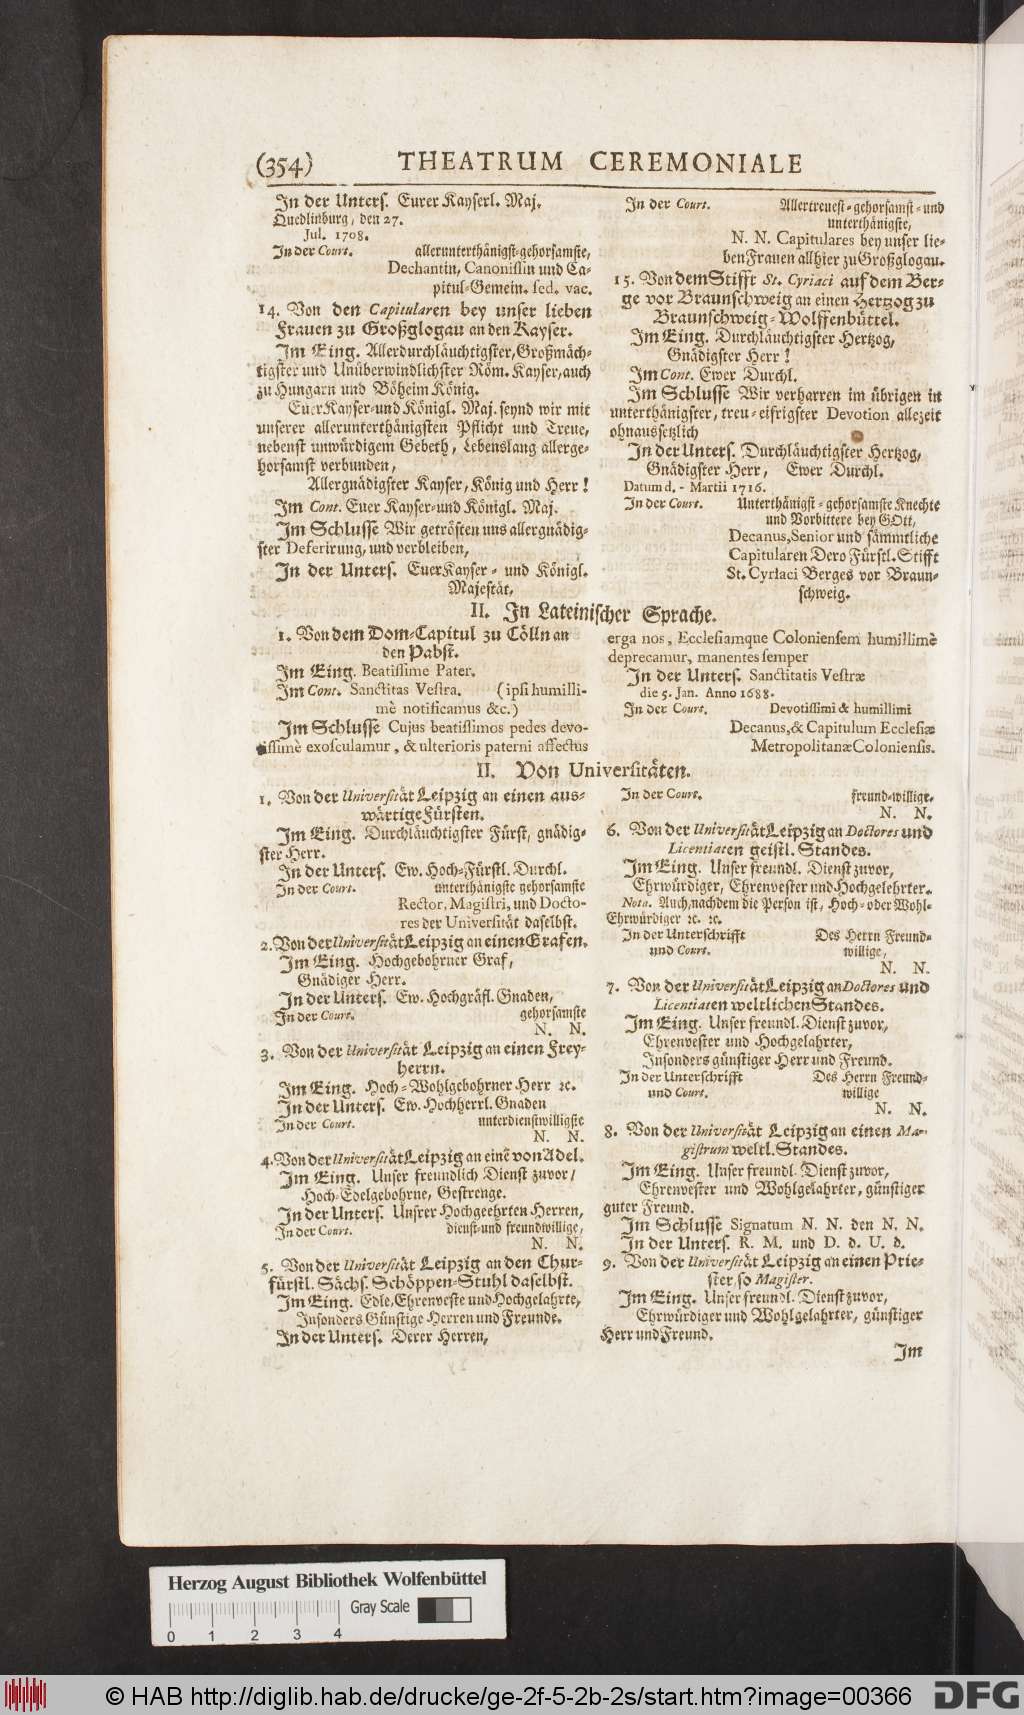 (354) THEATRUM CEREMONIALE
In der Unters. Eurer Kayserl. Maj.
Quedlinburg, den 27.
Jul. 1708.
In der Court. allerunterthänigst-gehorsamste,
Dechantin, Canonissin und Ca-
pitul-Gemein. sed. vac.
14. Von den Capitularen bey unser lieben
Frauen zu Großglogau an den Kayser.
Im Eing. Allerdurchläuchtigster, Großmäch-
tigster und Unüberwindlichster Röm. Kayser, auch
zu Hungarn und Böheim König.
Euer Kayser- und Königl. Maj. seynd wir mit
unserer allerunterthänigsten Pflicht und Treue,
nebenst unwürdigem Gebeth, Lebenslang allerge-
horsamst verbunden,
Allergnädigster Kayser, König und Herr!
Im Cont. Euer Kayser- und Königl. Maj.
Im Schlusse Wir getrösten uns allergnädig-
ster Deferirung, und verbleiben,
In der Unters. Euer Kayser- und Königl.
Majestät,
In der Court. Allertreuest-gehorsamst- und
unterthänigste,
N. N. Capitulares bey unser lie-
ben Frauen allhier zu Großglogau.
15. Von dem Stifft St. Cyriaci auf dem Ber-
ge vor Braunschweig an einen Hertzog zu
Braunschweig-Wolffenbüttel.
Im Eing. Durchläuchtigster Hertzog,
Gnädigster Herr!
Im Cont. Ewer Durchl.
Im Schlusse Wir verharren im übrigen in
unterthänigster, treu-eifrigster Devotion allezeit
ohnaussetzlich
In der Unters. Durchläuchtigster Hertzog,
Gnädigster Herr, Ewer Durchl.
Datum d. - Martii 1716.
In der Court. Unterthänigst-gehorsamste Knechte
und Vorbittere bey GOtt,
Decanus, Senior und sämmtliche
Capitularen Dero Fürstl. Stifft
St. Cyriaci Berges vor Braun-
schweig.
II. In Lateinischer Sprache.
1. Von dem Dom-Capitul zu Cölln an
den Pabst.
Im Eing. Beatissime Pater.
Im Cont. Sanctitas Vestra. (ipsi humilli-
mè notificamus &c.)
Im Schlusse Cujus beatissimos pedes devo-
tissimè exosculamur, & ulterioris paterni affectus
erga nos, Ecclesiamque Coloniensem humillimè
deprecamur, manentes semper
In der Unters. Sanctitatis Vestræ
die 5. Jan. Anno 1688.
In der Court. Devotissimi & humillimi
Decanus, & Capitulum Ecclesiæ
Metropolitanæ Coloniensis.
II. Von Universitäten.
1. Von der Universität Leipzig an einen aus-
wärtige Fürsten.
Im Eing. Durchläuchtigster Fürst, gnädig-
ster Herr.
In der Unters. Ew. Hoch-Fürstl. Durchl.
In der Court. unterthänigste gehorsamste
Rector, Magistri, und Docto-
res der Universität daselbst.
2. Von der Universität Leipzig an einen Grafen.
Im Eing. Hochgebohrner Graf,
Gnädiger Herr.
In der Unters. Ew. Hochgräfl. Gnaden,
In der Court. gehorsamste
N. N.
3. Von der Universität Leipzig an einen Frey-
herrn.
Im Eing. Hoch-Wohlgebohrner Herr ꝛc.
In der Unters. Ew. Hochherrl. Gnaden
In der Court. unterdienstwilligste
N. N.
4. Von der Universität Leipzig an einē von Adel.
Im Eing. Unser freundlich Dienst zuvor/
Hoch-Edelgebohrne, Gestrenge.
In der Unters. Unsrer Hochgeehrten Herren,
In der Court. dienst- und freundwillige,
N. N.
5. Von der Universität Leipzig an den Chur-
fürstl. Sächs. Schöppen-Stuhl daselbst.
Im Eing. Edle, Ehrenveste und Hochgelahrte,
Insonders Günstige Herren und Freunde.
In der Unters. Derer Herren,
In der Court. freund-willige.
N. N.
6. Von der Universität Leipzig an Doctores und
Licentiaten geistl. Standes.
Im Eing. Unser freundl. Dienst zuvor,
Ehrwürdiger, Ehrenvester und Hochgelehrter.
Nota. Auch, nachdem die Person ist, Hoch- oder Wohl-
Ehrwürdiger ꝛc. ꝛc.
In der Unterschrifft Des Herrn Freund-
und Court. willige,
N. N.
7. Von der Universität Leipzig an Doctores und
Licentiaten weltlichen Standes.
Im Eing. Unser freundl. Dienst zuvor,
Ehrenvester und Hochgelahrter,
Insonders günstiger Herr und Freund.
In der Unterschrifft Des Herrn Freund-
und Court. willige
N. N.
8. Von der Universität Leipzig an einen Ma-
gistrum weltl. Standes.
Im Eing. Unser freundl. Dienst zuvor,
Ehrenvester und Wohlgelahrter, günstiger
guter Freund.
Im Schlusse Signatum N. N. den N. N.
In der Unters. R. M. und D. d. U. d.
9. Von der Universität Leipzig an einen Prie-
ster, so Magister.
Im Eing. Unser freundl. Dienst zuvor,
Ehrwürdiger und Wohlgelahrter, günstiger
Herr und Freund.
Im
Herzog August Bibliothek Wolfenbüttel
Gray Scale
0 1 2 3 4
© HAB http://diglib.hab.de/drucke/ge-2f-5-2b-2s/start.htm?image=00366 DFG